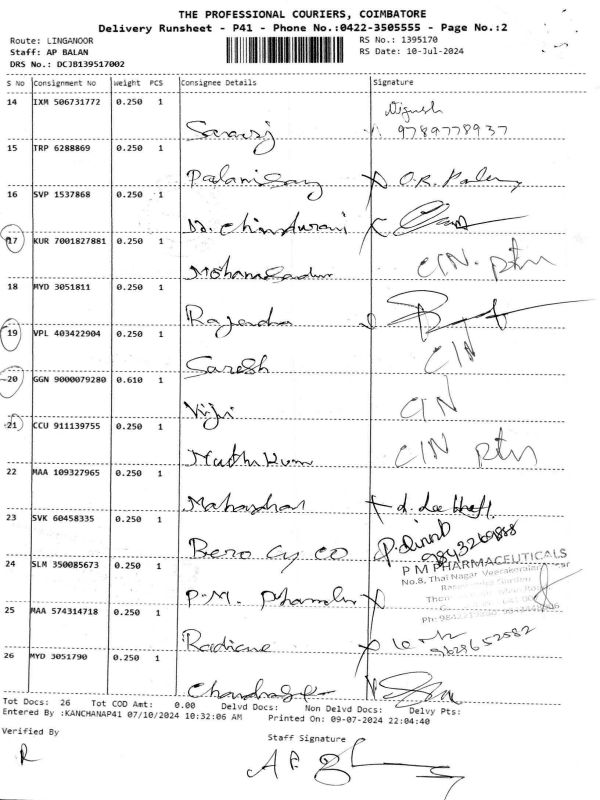 THE PROFESSIONAL COURIERS, COIMBATORE
Delivery Runsheet - P41 - Phone No.:0422-3505555 - Page No.:2
Route: LINGANOOR
RS No.: 1395170
Staff: AP BALAN
RS Date: 10-Jul-2024
DRS No.: DCJB139517002
S No Consignment No Weight PCS Consignee Details Signature
14 IXM 506731772 0.250 1
9789778937
15 TRP 6288869 0.250 1
Palanisamy
16 SVP 1537868 0.250 1
17 KUR 7001827881 0.250 1
CIN. ptn
18 MYD 3051811 0.250 1
Rajendra
19 VPL 403422904 0.250 1
Saresh CIN
20 GGN 9000079280 0.610 1
Viji CIN
21 CCU 911139755 0.250 1
Muthu Kum CIN ptn
22 MAA 109327965 0.250 1
23 SVK 60458335 0.250 1
Bero Cy co 9843269888
24 SLM 350085673 0.250 1
P M PHARMACEUTICALS
No.8, Thai Nagar
P.M. Pharmacy
25 MAA 574314718 0.250 1
Radiane
9628652582
26 MYD 3051790 0.250 1
Tot Docs: 26 Tot COD Amt: 0.00 Delvd Docs: Non Delvd Docs: Delvy Pts:
Entered By :KANCHANAP41 07/10/2024 10:32:06 AM Printed On: 09-07-2024 22:04:40
Verified By
Staff Signature
R